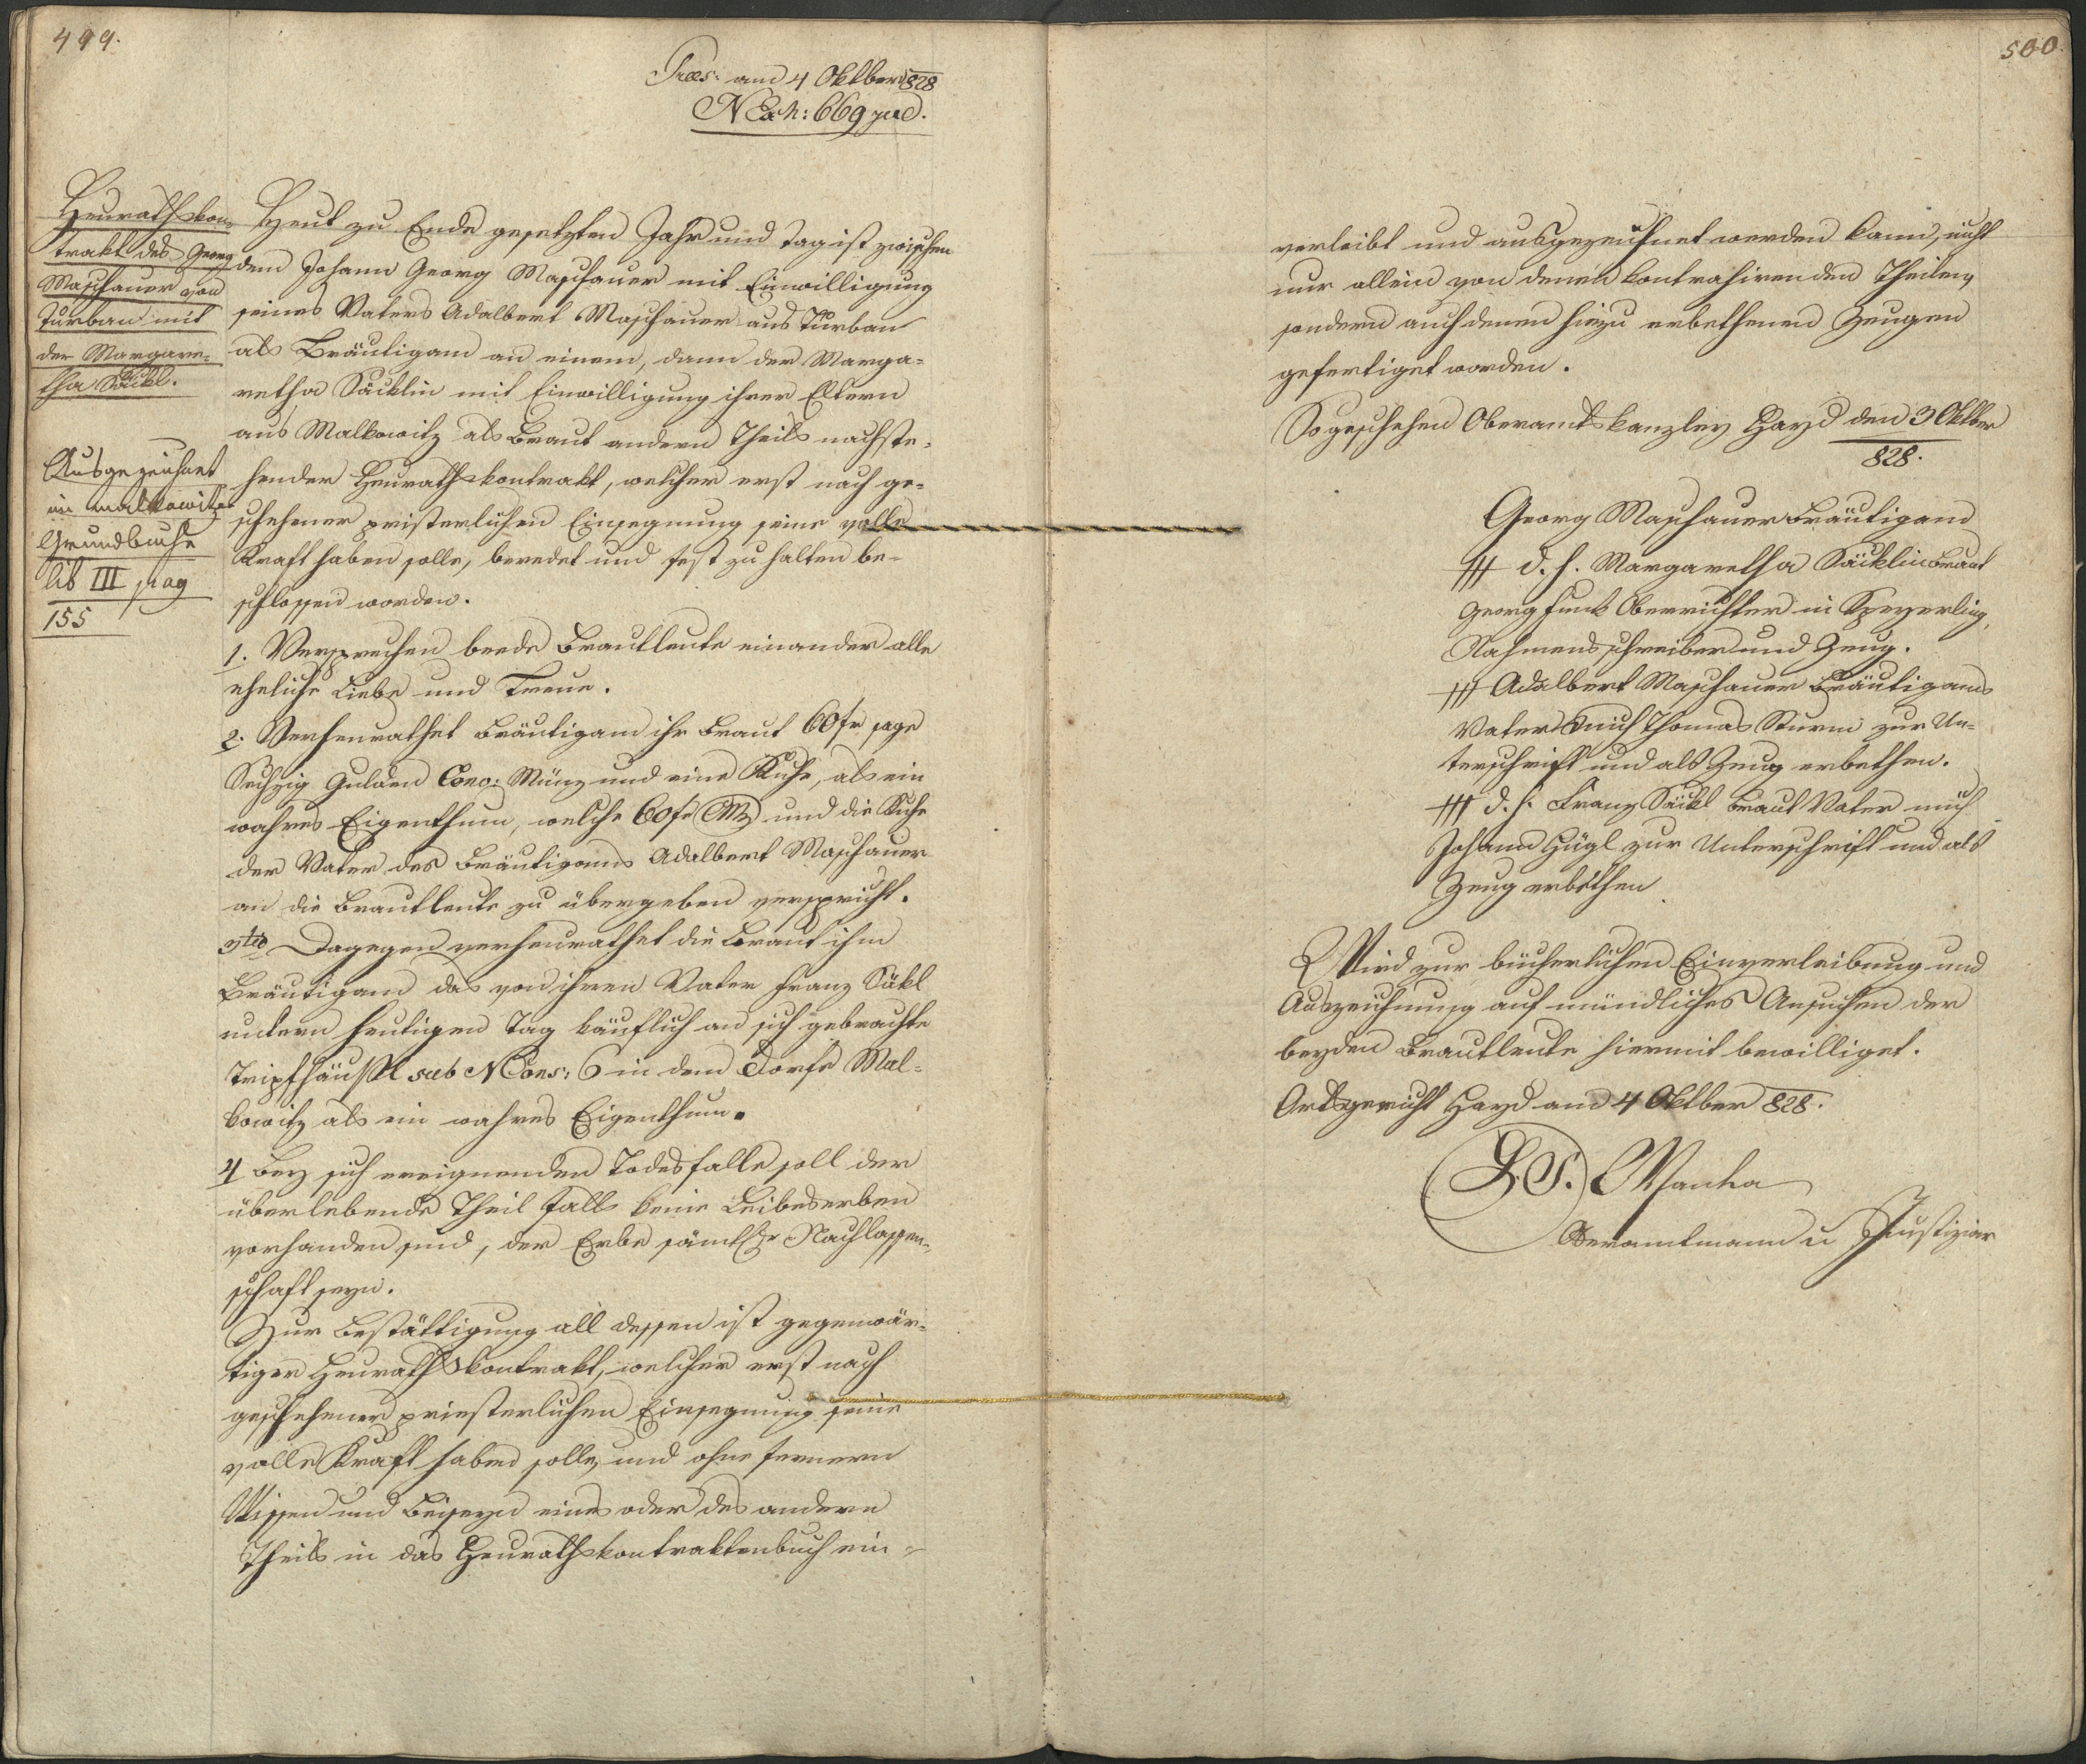 499.
Præs: am 4 Oktber 828
N Exh: 669 jud.
Heurathskon-
trakt des Georg
Maschauer von
Turban mit
der Margare-
tha Säckl.
Ausgezeichnet
im malkowitzer
Grundbuche
lib III pag
155
Heut zu Ende gesetzten Jahr und Tag ist zwischen
dem Johann Georg Maschauer mit Einwilligung
seines Vaters Adalbert Maschauer aus Turban
als Bräutigam an einem, dann der Marga-
retha Säcklin mit Einwilligung ihrer Eltern
aus Malkowitz als Braut andern Theils nachste-
hender Heurathskontrakt, welcher erst nach ge-
schehener pristerlichen Einsegnung seine volle
Kraft haben solle, beredet und fest zu halten be-
schlossen worden.
1. Versprechen beede Brautleute einander alle
eheliche Liebe und Treue.
2. Verheurathet Bräutigam ihr Braut 60 fr sage
Sechzig Gulden Conv: Münz und eine Kuhe, als ein
wahres Eigenthum, welche 60 fr CMz und die Kuhe
der Vater des Bräutigams Adalbert Maschauer
an die Brautleute zu übergeben verspricht.
3tio Dagegen verheurathet die Braut ihm
Bräutigam das von ihren Vater Franz Säkl
untern heutigen Tag käuflich an sich gebrachte
Tripfhäußl sub N Cons: 6 in dem Dorfe Mal-
kowitz als ein wahres Eigenthum.
4 Bey sich ereignenden Todesfalle soll der
überlebende Theil falls keine Leibeserben
vorhanden sind, der Erbe sämtlr Nachlassen-
schaft seyn.
Zur Bestättigung all dessen ist gegenwär-
tiger Heurathskontrakt, welcher erst nach
geschehener priesterlichen Einsegnung seine
volle Kraft haben solle, und ohne fernern
Wissen und Beiseyn eines oder des andern
Theils in das Heurathskontraktenbuch ein-
500.
verleibt und ausgezeichnet werden kann, nicht
nur allein von denen kontrahirenden Theilen,
sondern auch denen hiezu erbethenen Zeugen
gefertiget worden.
So geschehen Oberamtskanzley Hayd den 3 Oktber
828.
Georg Maschauer Bräutigam
+++ d. h. Margaretha Säcklin Braut
Georg Funk Oberrichter in Speyerling,
Nahmensschreiber und Zeug.
+++ Adalbert Maschauer Bräutigams
Vater mich Thomas Sturm zur Un-
terschrift und als Zeug erbethen.
+++ d. h. Franz Säckl Braut Vater mich
Johann Hügl zur Unterschrift und als
Zeug erbethen
Wird zur bücherlichen Einverleibung und
Auszeichnung auf mündliches Ansuchen der
beyden Brautleute hiermit bewilliget.
Ortsgericht Hayd am 4 Oktber 828.
L.S. Manka
Oberamtmann u Justiziar